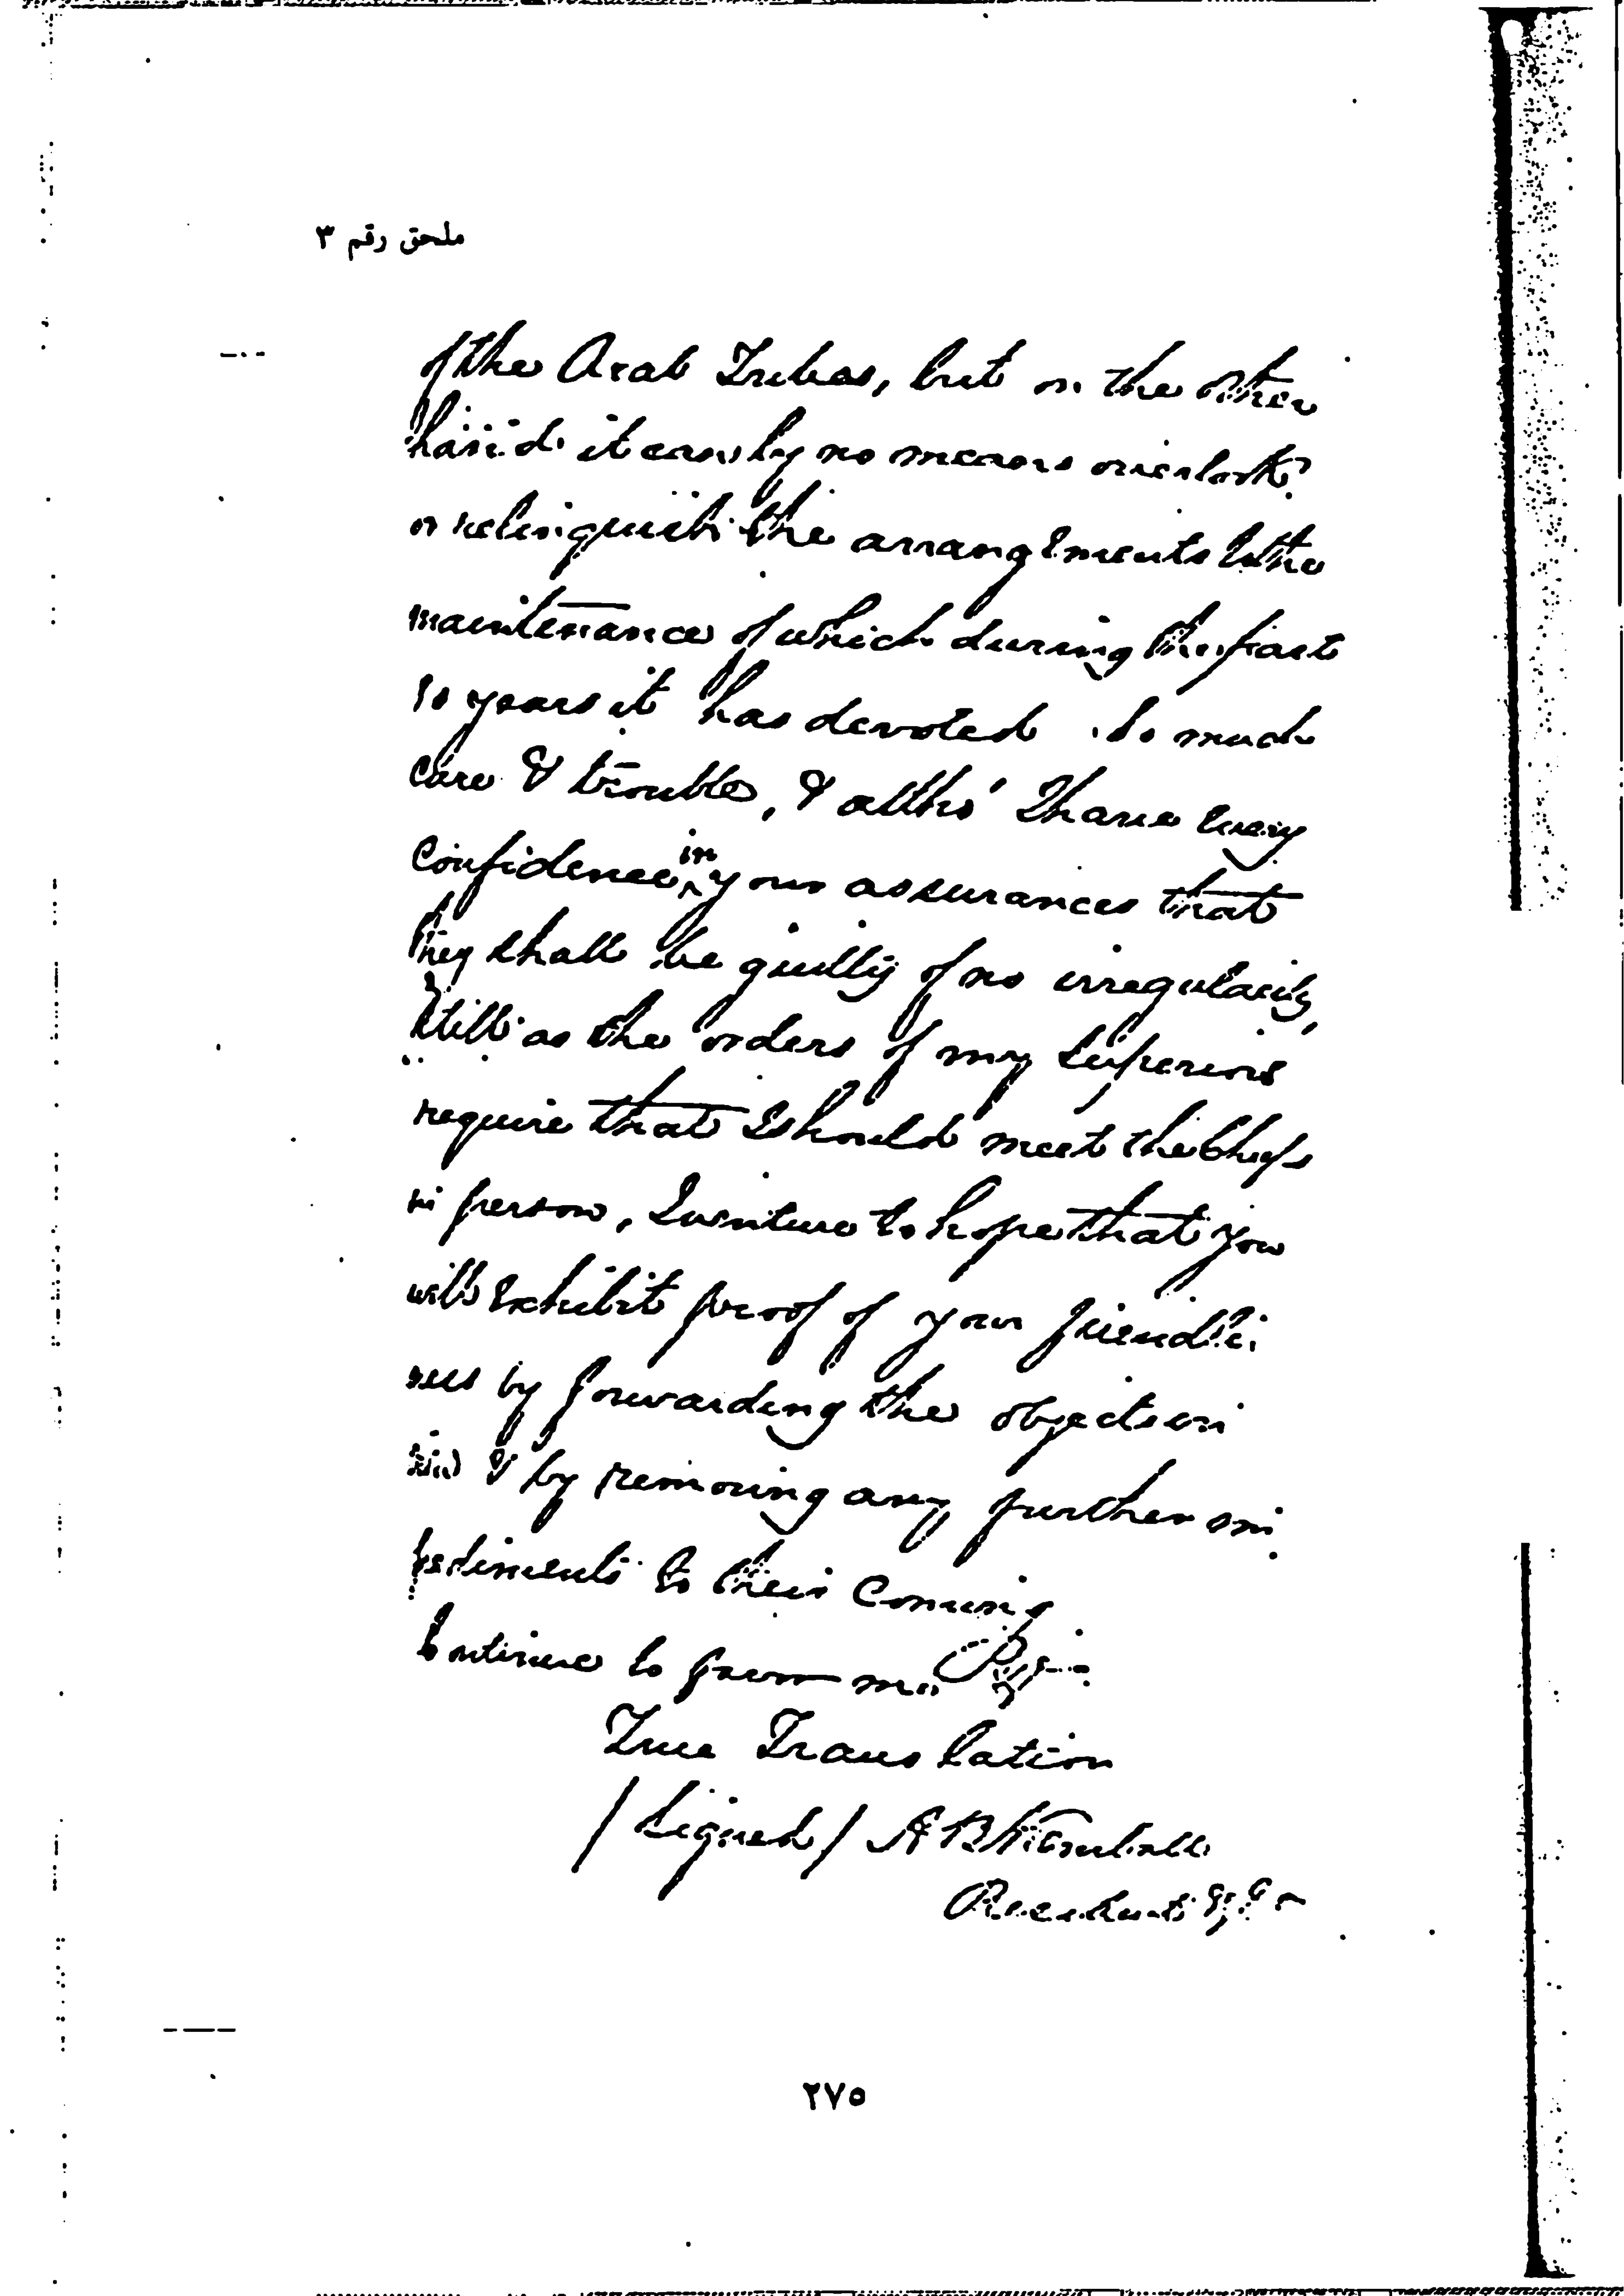 ملحق رقم ٣
of the Arab Tribes, but on the other
hand it can by no means overlook
or relinquish the arrangements to the
maintenance of which during the past
10 years it has devoted so much
care & trouble, & altho' I have every
confidence in your assurances that
they shall be guilty of no irregularity,
still as the orders of my superiors
require that I should meet the Chiefs
in person, I venture to hope that you
will exhibit proof of your friendli
ness by forwarding the objects in
view & by removing any further im
pediments to their coming
Continue to favor me
True Translation
/Signed/ A B Kemball
Resident
٢٧٥